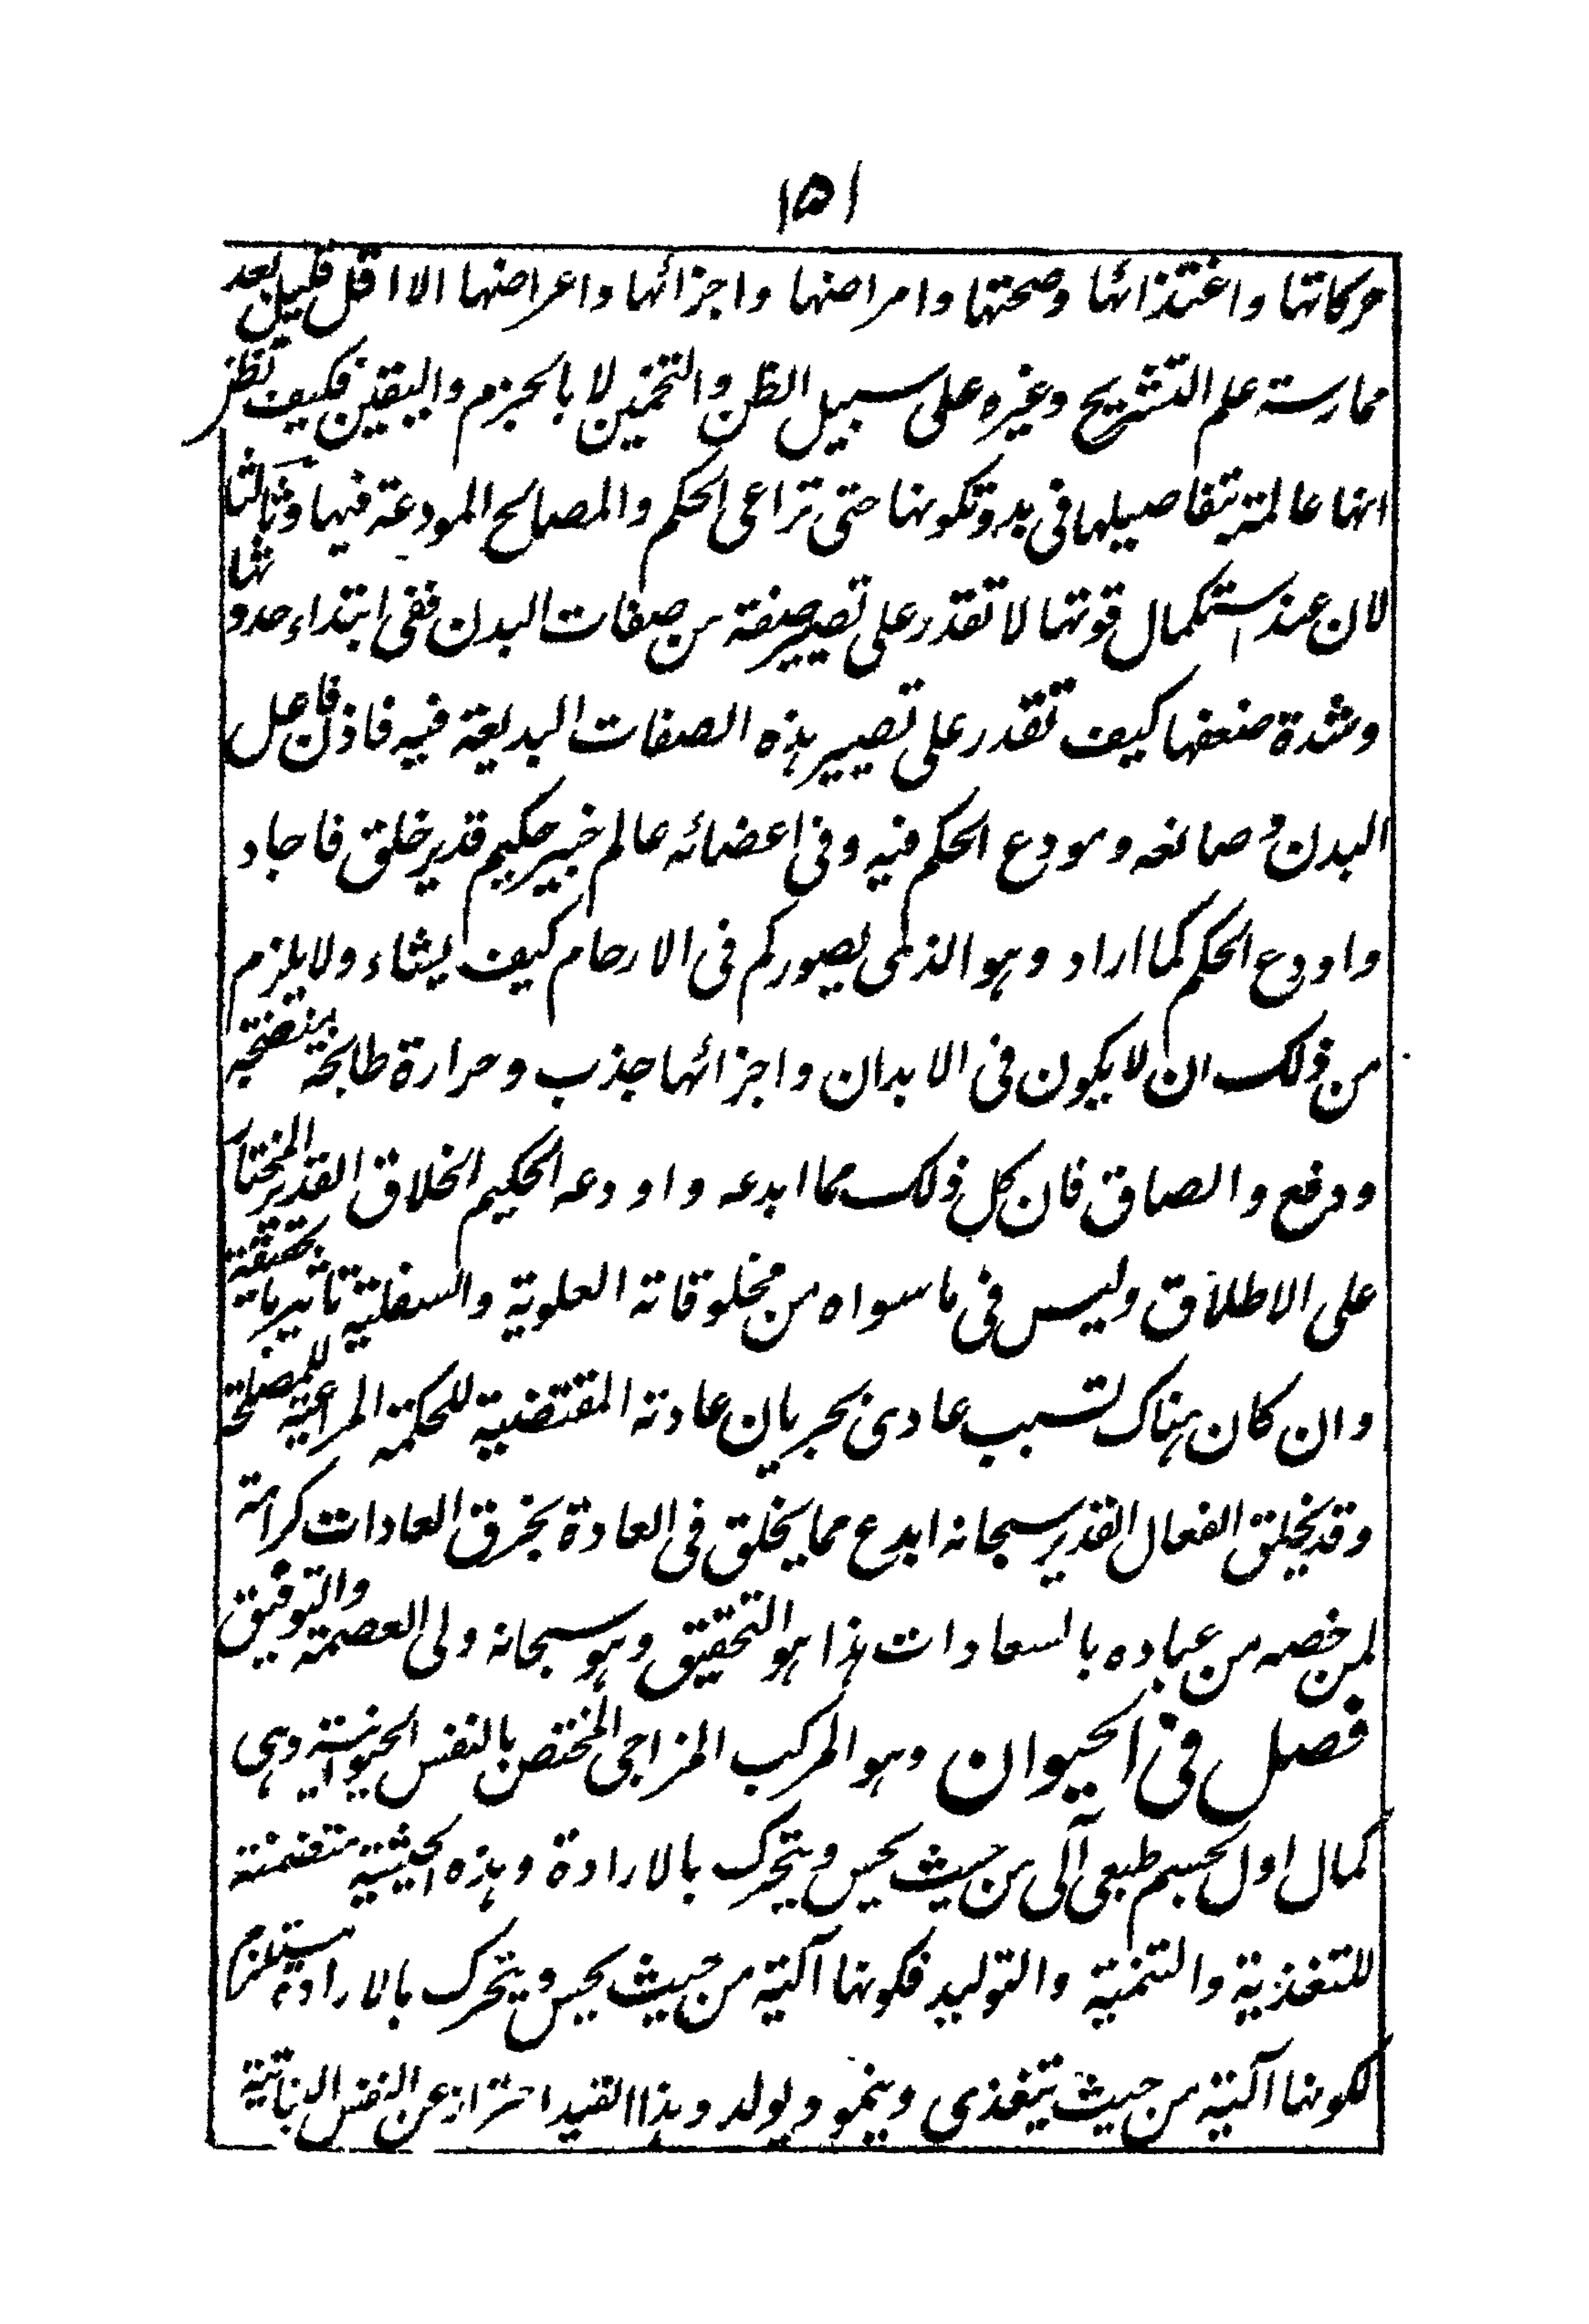 ١٥١
حركاتها واغتذائها وصحتها وامراضها واجزائها واعراضها الا اقل قليل بعد
ممارسته علم التشريح وغيره على سبيل الظن والتخمين لا بالجزم واليقين فكيف تظن
انها عالمة بتفاصيلها فى بدو تكونها حتى تراعى الحكم والمصالح المودعة فيها وثالثا
لان عند استكمال قوتها لا تقدر على تصيير صفة من صفات البدن ففى ابتداء حدوثها
وشدة ضعفها كيف تقدر على تصيير هذه الصفات البديعة فيه فاذن فاعل
البدن وصانعه ومودع الحكم فيه وفى اعضائه عالم خبير حكيم قدير خلق فاجاد
واودع الحكم كما اراد وهو الذى يصوركم فى الارحام كيف يشاء ولا يلزم
من ذلك ان لا يكون فى الابدان واجزائها جذب وحرارة طابخة منضجة
ودفع والصاق فان كل ذلك مما ابدعه واودعه الحكيم الخلاق القدير المختار
على الاطلاق وليس فى ما سواه من مخلوقاته العلوية والسفلية تاثير بالحقيقة
وان كان هناك تسبب عادى بجريان عادته المقتضية للحكمة المراعية للمصلحة
وقد يخلق الفعال القدير سبحانه ابدع مما يخلق فى العادة بخرق العادات كرامة
لمن خصه من عباده بالسعادات هذا هو التحقيق وهو سبحانه ولى العصمة والتوفيق
فصل فى الحيوان وهو المركب المزاجى المختص بالنفس الحيوانية وهى
كمال اول لجسم طبعى آلى من حيث يحس ويتحرك بالارادة وهذه الحيثية متضمنة
للتغذية والتنمية والتوليد فكونها آلية من حيث يحس ويتحرك بالارادة مستلزم
لكونها آلية من حيث يتغذى وينمو ويولد وهذا القيد احتراز عن النفس النباتية